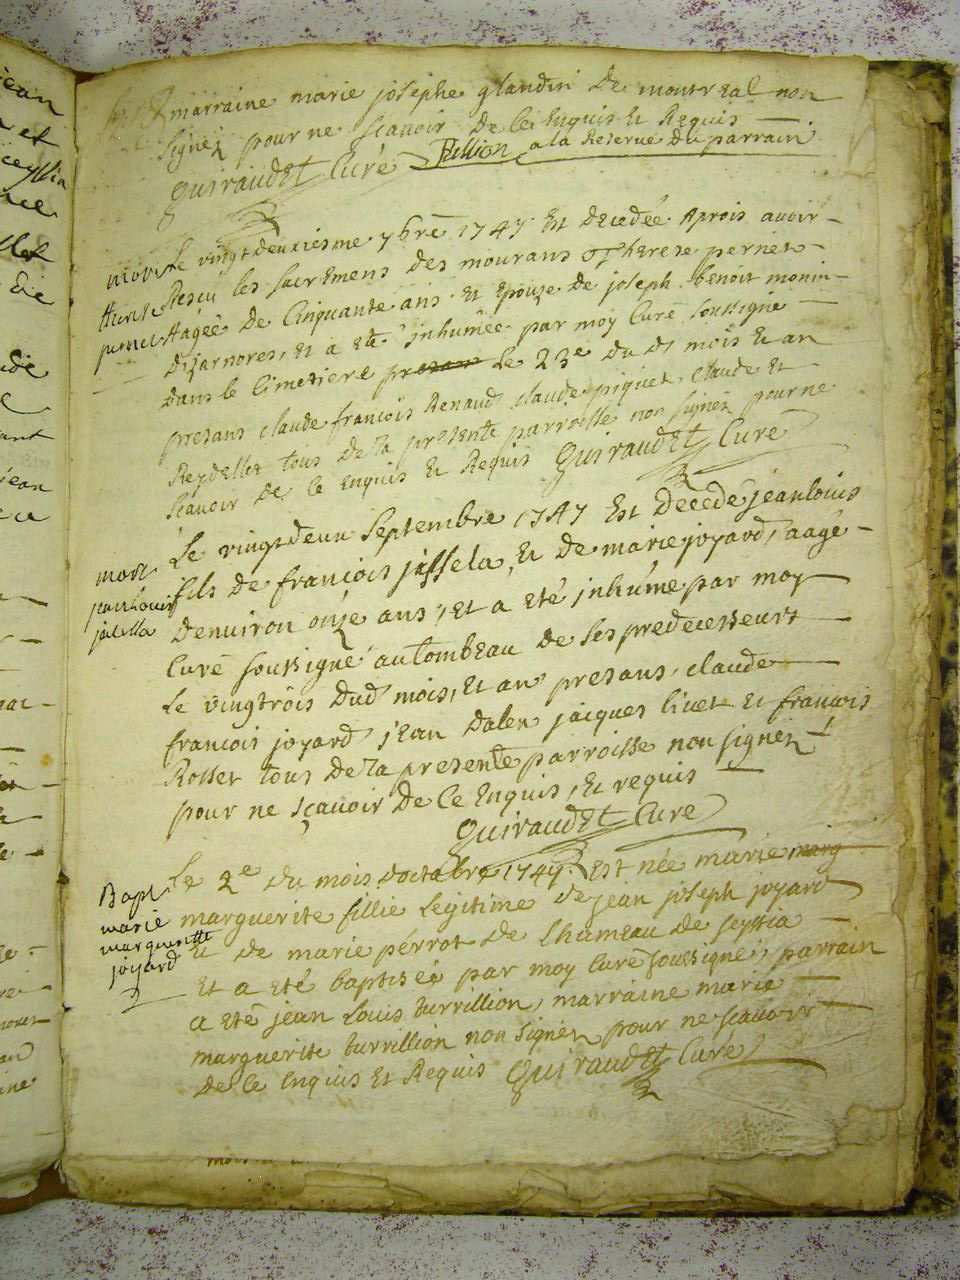 marraine marie josephe glandin de montreal non
signéz pour ne scavoir de ce Enquis Et Requis
Guiraudet Curé Tillion a la Reserve du parrain
mort
therese
pernet
Le vingtdeuxiesme 7bre 1747 Est decedée aprois avoir
Resçu les sacremens des mourans Therese pernet
Aagée de Cinquante ans Et Epouze de joseph benoit monin
dizarnores, Et a eté inhumée par moy Curé soussigné
dans le Cimetiere presans Le 23e du d mois Et an
presans claude francois Renaud claude piquet, claude Et
Reydellet tous de la presente parroisse non signéz pour ne
scavoir de ce Enquis Et Requis Guiraudet Curé
mort
jeanlouis
jasella
Le vingtdeux septembre 1747 Est decedé jeanlouis
fils de francois jassela, Et de marie joyard, aagé
denviron onze ans, Et a eté jnhumé par moy
Curé soussigné au Tombeau de ses predecesseurs
Le vingtrois dud mois, Et an presans, claude
francois joyard jean dalen jacques livet Et francois
Rosset tous de la presente parroisse non signéz
pour ne sçavoir de Ce Enquis, Et requis
Guiraudet Cure
Bapt
marie
margueritte
joyard
Le 2e du mois doctobre 1747. Est née marie marg
marguerite fillie Legitime de jean joseph joyard
Et de marie pérrot de Lhameau de seyssia
Et a eté baptisée par moy Curé soussigné, parrain
a eté jean Louis burrillion, marraine marie
marguerite burrillion non signéz pour ne scavoir
de Ce Enquis Et Requis Guiraudet Cure